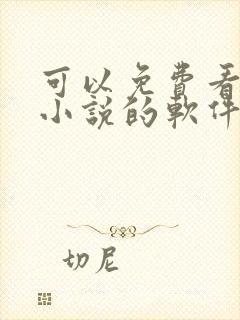 可以免費看
小說的軟件
切尼